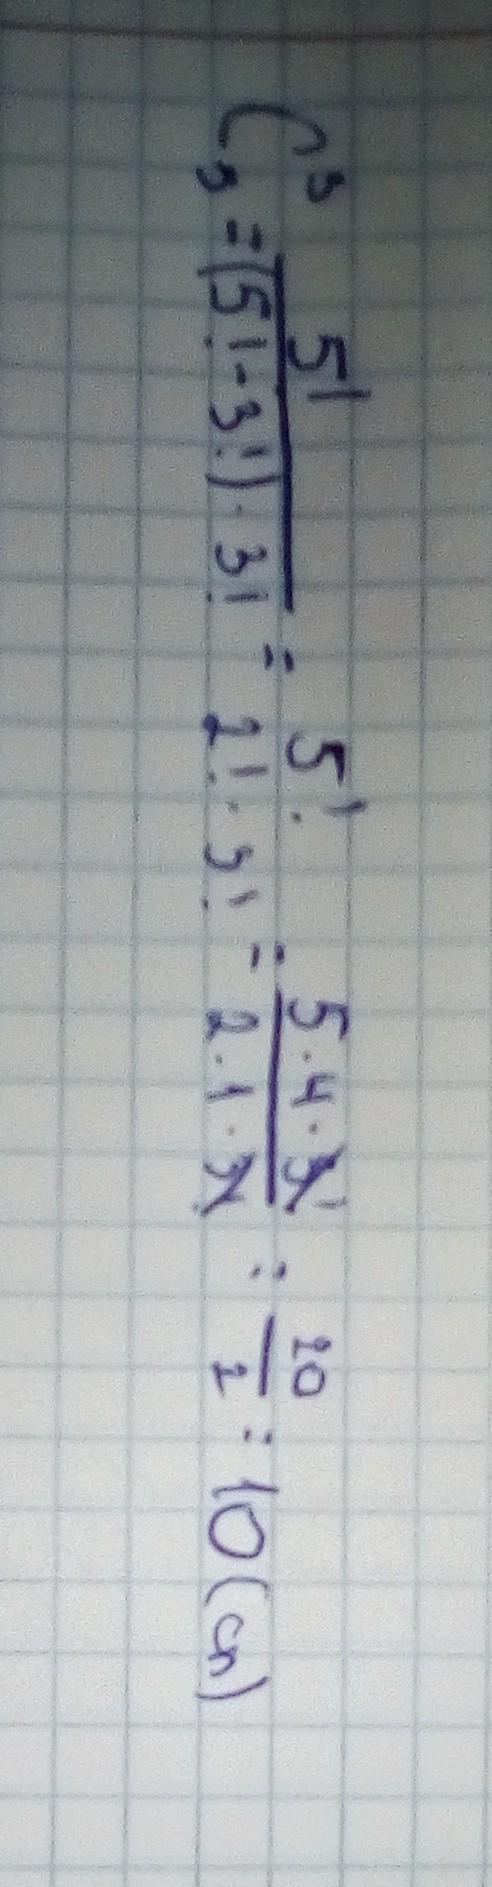 C₅³ = 5! / (5! - 3!) · 3! = 5! / 2! · 3! = 5 · 4 · 3! / 2 · 1 · 3! = 20 / 2 = 10 (сп)